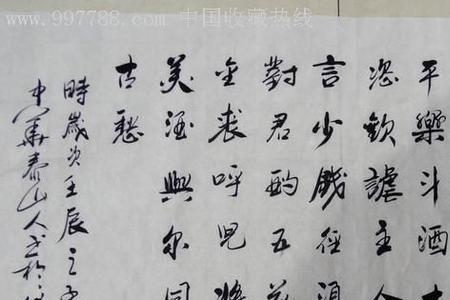 www.997788.com 中国收藏热线
平樂斗酒十
恣歡謔主人
言少錢徑須
對君酌五花
金裘呼兒將
美酒與尔同
古愁
時歲次壬辰之
中華泰山人书於